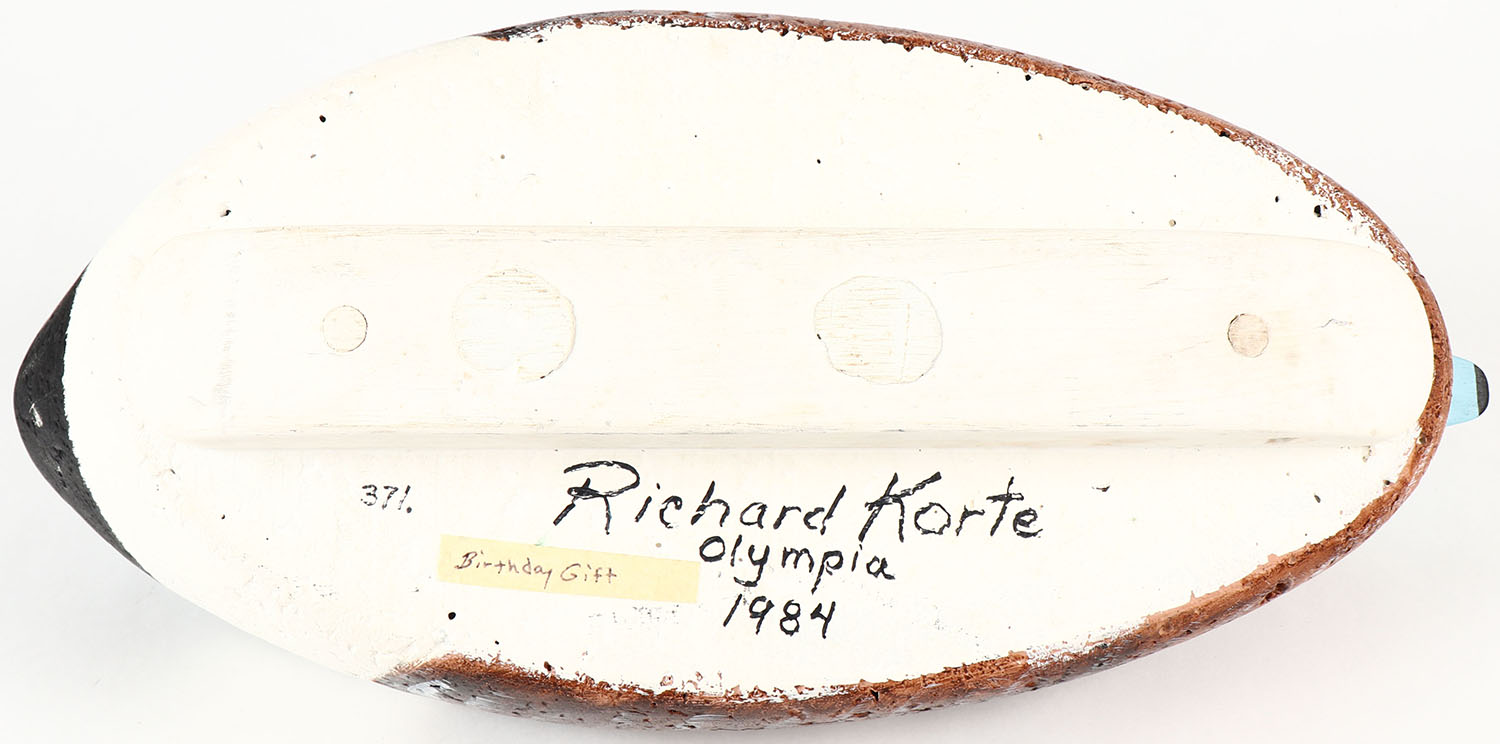 371.
Richard Korte
Olympia
1984
Birthday Gift